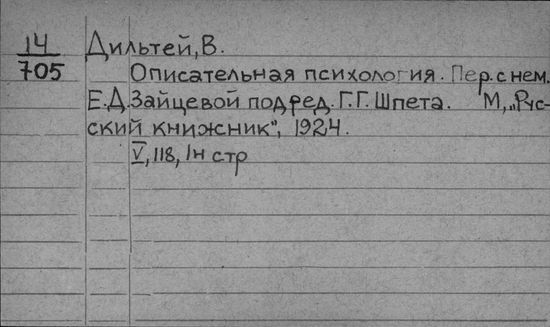 14 Дильтей, В.
705 Описательная психология. Пер. с нем.
Е.Д.Зайцевой под ред. Г.Г. Шпета. М., „Рус-
ский книжник", 1924.
V, 118, 1н стр